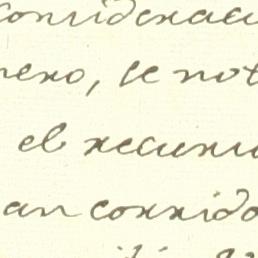 consideraci
nero, se not
el recurso
an corrido